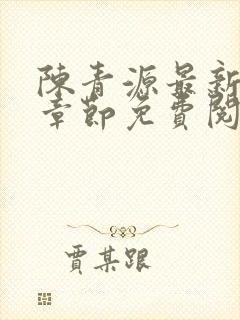 陳青源最新
章節免費閱
賈某跟